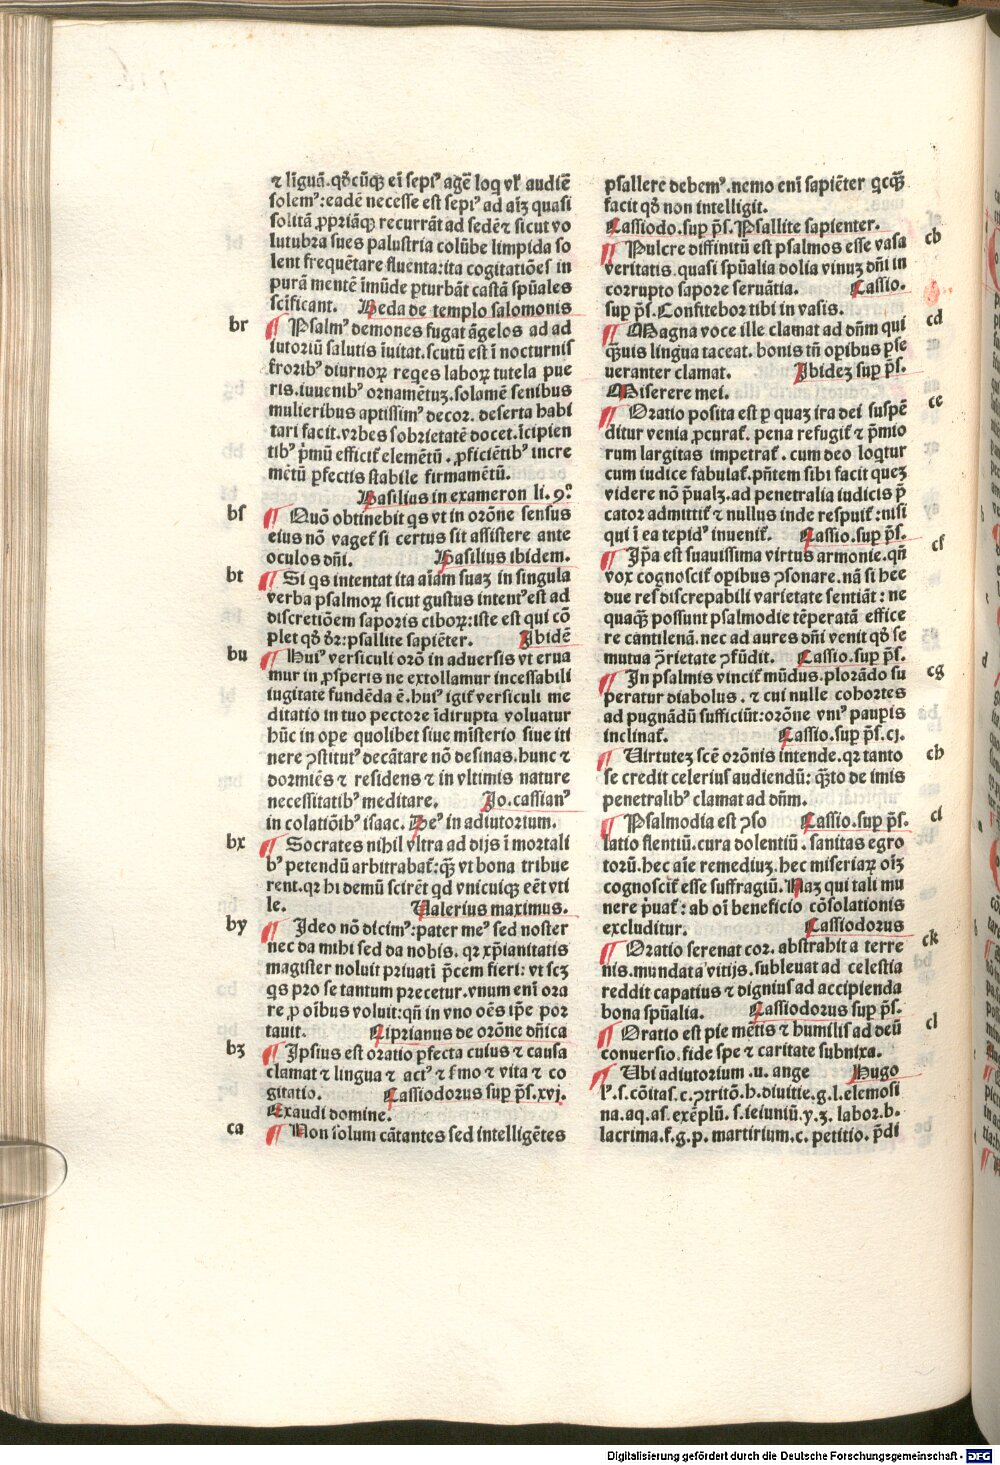 ⁊ linguā.qd̛cūqꝫ ei sepiꝰ agē loq vl̛ audiē
solemꝰ:eadē necesse est sepiꝰ ad aīꝫ quasi
solitā ꝓpriāqꝫ recurrāt ad sedē⁊ sicut vo
lutubra sues palustria colūbe limpida so
lent frequētare fluenta:ita cogitatiōes in
purā mentē īmūde ꝑturbāt castā spūales
scīficant. Beda de templo salomonis
br ¶ Psalmꝰ demones fugat āgelos ad ad
iutoriū salutis īuitat.scutū est ī nocturnis
t̛roribꝰ diurnoꝝ reqes laboꝝ tutela pue
ris.iuuenibꝰ ornamētuꝫ.solamē senibus
mulieribus aptissimꝰ decor. deserta habi
tari facit.vrbes sobrietatē docet.īcipien
tibꝰ p̄mū efficit̛ elemētū. ꝓficiētibꝰ incre
mētū ꝑfectis stabile firmamētū.
Basilius in exameron li. 9.º
bs ¶ Quō obtinebit qs vt in orōne sensus
eius nō vaget̛ si certus sit assistere ante
oculos dn̄i. Basilius ibidem.
bt ¶ Si qs intentat ita aīam suaꝫ in singula
verba psalmoꝝ sicut gustus intentꝰest ad
discretiōem saporis ciboꝝ:iste est qui cō
plet qd̛ dr̄:psallite sapiēter. Ibidē
bu ¶ Huiꝰ versiculi orō in aduersis vt erua
mur in ꝓsperis ne extollamur incessabili
iugitate fundēda ē.huiꝰ igit̛ versiculi me
ditatio in tuo pectore īdirupta voluatur
hūc in ope quolibet siue mīsterio siue iti
nere ↄstitutꝰ decātare nō desinas.hunc ⁊
dormiēs ⁊ residens ⁊ in vltimis nature
necessitatibꝰ meditare. Jo.cassianꝰ
in colatiōibꝰ isaac. Deꝰ in adiutorium.
bx ¶ Socrates nihil vltra ad dijs ī mortali
bꝰ petendū arbitrabat̛:qꝫ vt bona tribue
rent.qr hi demū scirēt qd vnicuiqꝫ eēt vti
le. Valerius maximus.
by ¶ Ideo nō dicimꝰ:pater meꝰ sed noster
nec da mihi sed da nobis. qr xp̄ianitatis
magister noluit priuati p̄cem fieri: vt scꝫ
qs pro se tantum precetur.vnum eni ora
re ꝓ oībus voluit:qn̄ in vno oēs ip̄e por
tauit. Ciprianus de orōne dn̄ica
bz ¶ Ipsius est oratio ꝑfecta cuius ⁊ causa
clamat ⁊ lingua ⁊ actꝰ ⁊ s̛mo ⁊ vita ⁊ co
gitatio. Cassiodorus sup ps̄.xvj.
Exaudi domine.
ca ¶ Non solum cātantes sed intelligētes
psallere debemꝰ.nemo eni sapiēter qcqꝫ
facit qd̛ non intelligit.
Cassiodo.sup ps̄.Psallite sapienter.
cb ¶ Pulcre diffinitū est psalmos esse vasa
veritatis.quasi spūalia dolia vinuꝫ dn̄i in
corrupto sapore seruātia. Cassio.
sup ps̄.Confitebor tibi in vasis.
cd ¶ Magna voce ille clamat ad dn̄m qui
qꝫuis lingua taceat. bonis tn̄ opibus ꝑse
ueranter clamat. Ibideꝫ sup ps̄.
Miserere mei.
ce ¶ Oratio posita est ꝑ quaꝫ ira dei suspē
ditur venia ꝓcurat̛. pena refugit̛ ⁊ p̄mio
rum largitas impetrat̛. cum deo loqtur
cum iudice fabulat̛.pn̄tem sibi facit queꝫ
videre nō p̄ualꝫ.ad penetralia iudicis p̄
cator admittit̛ ⁊ nullus inde respuit̛:nisi
qui ī ea tepidꝰ inuenit̛. Cassio.sup ps̄.
cf ¶ Ip̄a est suauissima virtus armonie.qn̄
vox cognoscit̛ opibus ↄsonare.nā si hee
due res discrepabili varietate sentiāt : ne
quaqꝫ possunt psalmodie tēperatā effice
re cantilenā.nec ad aures dn̄i venit qd̛ se
mutua ↄ̄rietate ↄfūdit. Cassio.sup ps̄.
cg ¶ In psalmis vincit̛ mūdus.plorādo su
peratur diabolus. ⁊ cui nulle cohortes
ad pugnādū sufficiūt:orōne vniꝰ paupis
inclinat̛. Cassio.sup ps̄.cj.
ch ¶ Virtuteꝫ scē orōnis intende.qr tanto
se credit celerius audiendū: qꝫto de imis
penetralibꝰ clamat ad dn̄m.
ci ¶ Psalmodia est ↄso Cassio.sup ps̄.
latio flentiū.cura dolentiū . sanitas egro
torū.hec aīe remediuꝫ.hec miseriaꝝ oīꝫ
cognoscit̛ esse suffragiū.Naꝫ qui tali mu
nere p̄uat̛ : ab oī beneficio cōsolationis
excluditur. Cassiodorus
ck ¶ Oratio serenat cor. abstrahit a terre
nis.mundata vitijs.subleuat ad celestia
reddit capatius ⁊ dignius ad accipienda
bona spūalia. Cassiodorus sup ps̄.
cl ¶ Oratio est pie mētis ⁊ humilis ad deū
conuersio.fide spe ⁊ caritate subnixa.
¶ Ubi adiutorium .u. ange Hugo
lꝰ.s.cōitas.c.ↄtritō.h.diuitie.g.l.elemosi
na.aq.as.exēplū.s.ieiuniū.y.ꝫ. labor.b.
lacrima.f.g.p. martirium.c. petitio. p̄di
Digitalisierung gefördert durch die Deutsche Forschungsgemeinschaft - DFG